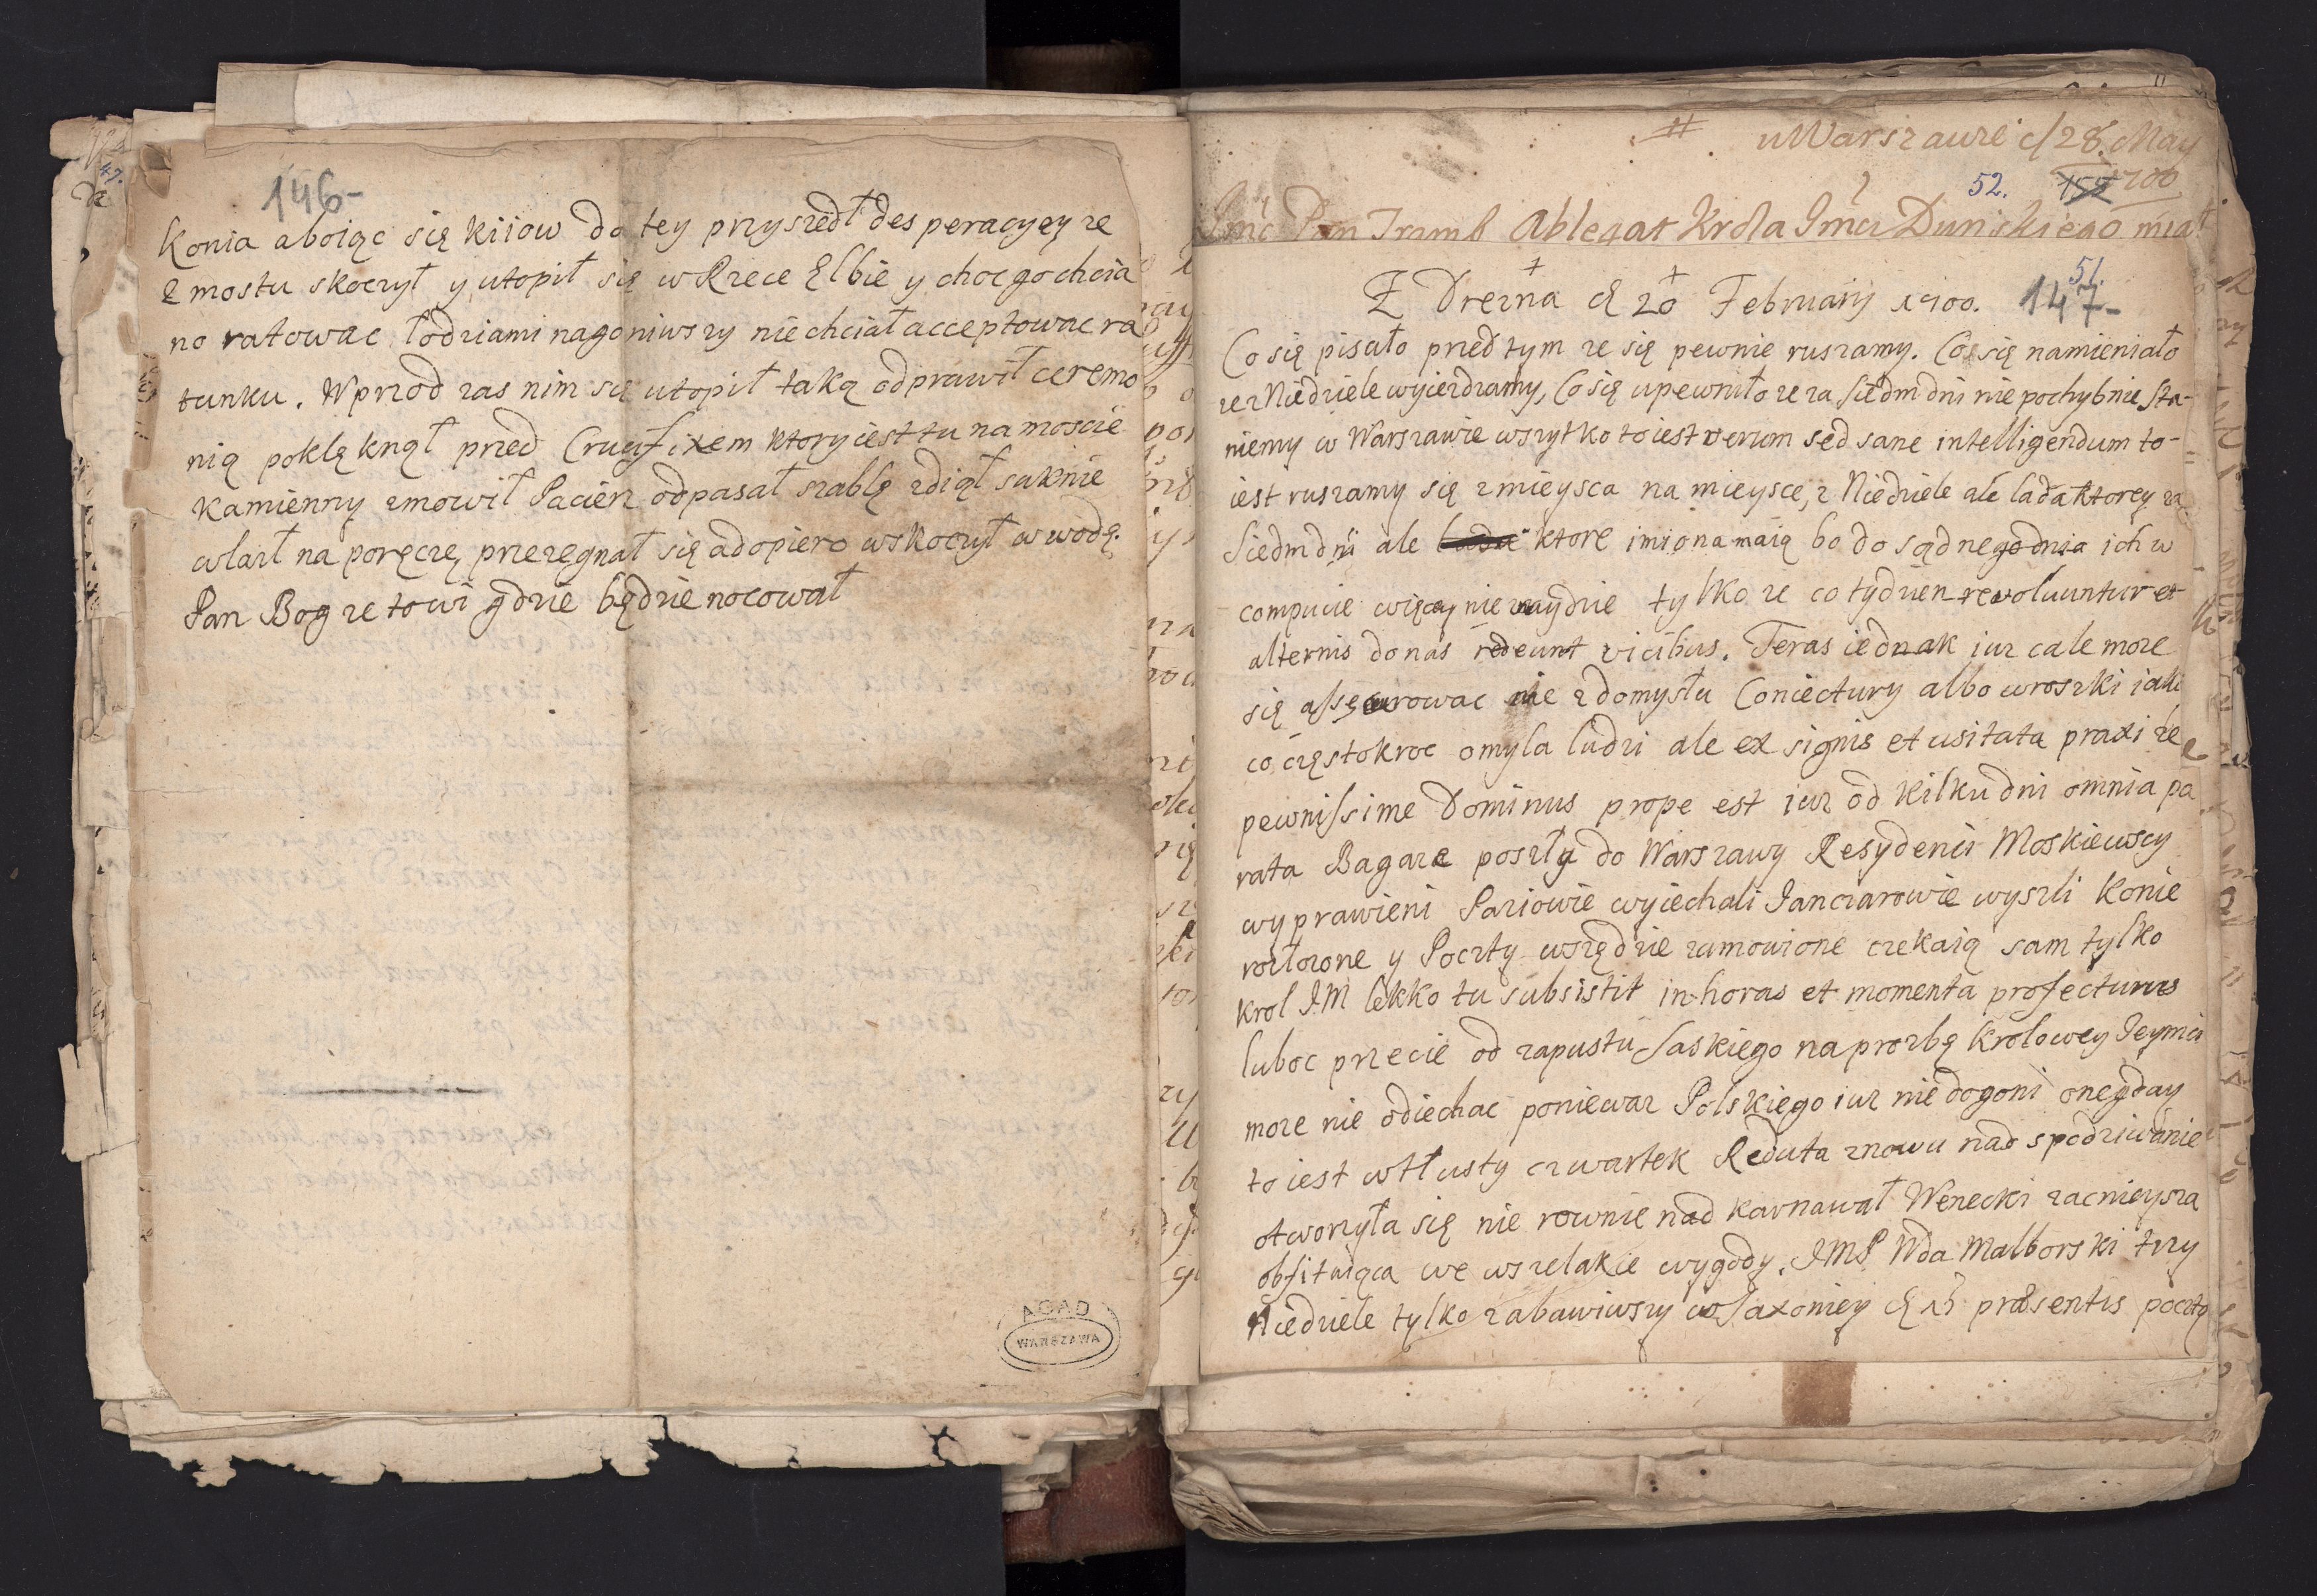 146-
Konia aboiąc się kiiow do tey przyszedł desperacyęy ze
z mostu skoczył y utopił się w Rzece Elbie y choc go chcia
no ratowac łodziami nagoniwszy nie chciał acceptowac ra
tunku. Wprzod zas nim się utopił taką odprawił ceremo
nią poklęknął przed Crucifixem ktory iest tu na moscie
kamienny zmowił Pacierz odpasał szablę zdiął suknie
wlazł na poręczę, przezegnał się adopiero wskoczył w wodę.
Pan Bog ze to wi gdzie będzie nocował
AGAD
WARSZAWA
w Warszawie d 28. May
1700
52.
Jmć Pan Ablegat Krola Jmci Dunskiego miał
51.
Z Drezna d 20 February 1700. 147-
Co się pisało przed tym ze się pewnie ruszamy. Co się namieniało
ze z Niedziele wyiezdzamy, Co się upewniło ze za siedm dni nie pochybnie sta-
niemy w Warszawie wszytko to iest verum sed sane intelligendum to-
iest ruszamy się z mieysca na mieysce, z Niedziele ale lada ktorey za
Siedm dni ale ktore imiona maią bo do sądnego dnia ich w
compucie więcey nie wnydzie tylko ze co tydzien revoluuntur et
alternis do nas redeunt vicibus. Teras iednak iuz cale moze
się assęcurowac nie z domysłu Coniectury albo wroszki iak
co częstokroc omyla ludzi ale ex signis et usitata praxi ze
pewnissime Dominus prope est iuz od kilku dni omnia pa
rata Bagaze poszły do Warszawy Resydenci Moskiewscy
wyprawieni Paziowie wyiechali Janczarowie wyszli Konie
rozłozone y Poczty wszędzie zamowione czekaią sam tylko
krol JM lekko tu subsistit in horas et momenta profecturus
luboc przecie od zapustu Saskiego na prozbę Krolowey Jeymci
moze nie odiechac poniewaz Polskiego iuz nie dogoni onegday
to iest w tłusty czwartek Reduta znowu nad spodziwanie
otworzyła się nie rownie nad karnawał Wenecki zacnieysza
obfituiąca we wszelakie wygody. JMP Wda Malborski trzy
Niedziele tylko zabawiwszy w Saxoniey d 15 præsentis pocztą